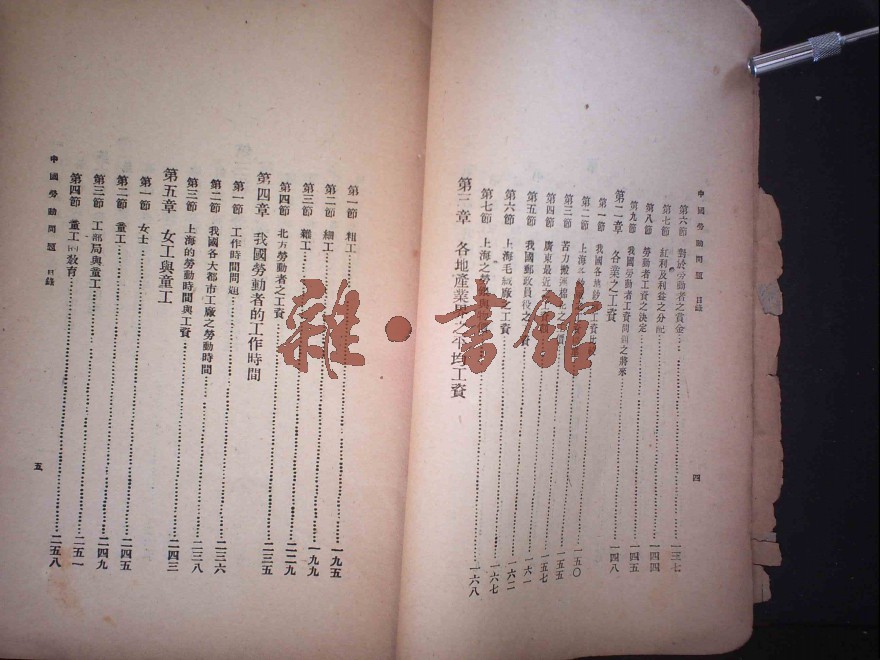 中國勞動問題 目錄
第六節 對於勞動者之賞金 一三七
第七節 紅利及利益之分配 一四四
第八節 勞動者工資之決定 一四五
第九節 我國勞動者工資問題之將來 一四八
第二章 各業之工資
第一節 我國各地 工資比較 一五〇
第二節 上海 工資
第三節 苦力搬運 之 一五五
第四節 廣東最近 一五七
第五節 我國郵政員役之 資 一六一
第六節 上海毛絨廠之工資 一六二
第七節 上海之勞 一六七
第三章 各地產業界之平均工資 一六八
四
第一節 粗工 一九五
第二節 細工 一九九
第三節 雜工
第四節 北方勞動者之工資 二二九
第四章 我國勞動者的工作時間 二三五
第一節 工作時間問題
第二節 我國各大都市工廠之勞動時間 二三六
第三節 上海的勞動時間與工資 二三八
第五章 女工與童工 二四三
第一節 女士
第二節 童工 二四五
第三節 工部局與童工 二四九
第四節 童工的教育 二五一
二五八
中國勞動問題 目錄
五
雜·書館